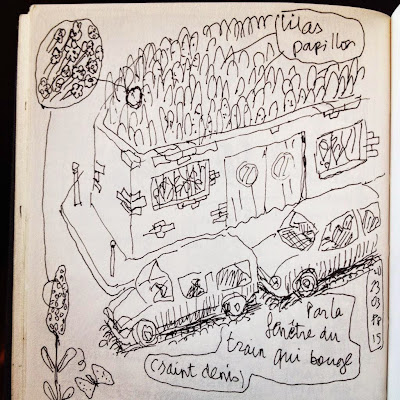 lilas
papillon
Par la
fenêtre du
train qui bouge
(saint denis)